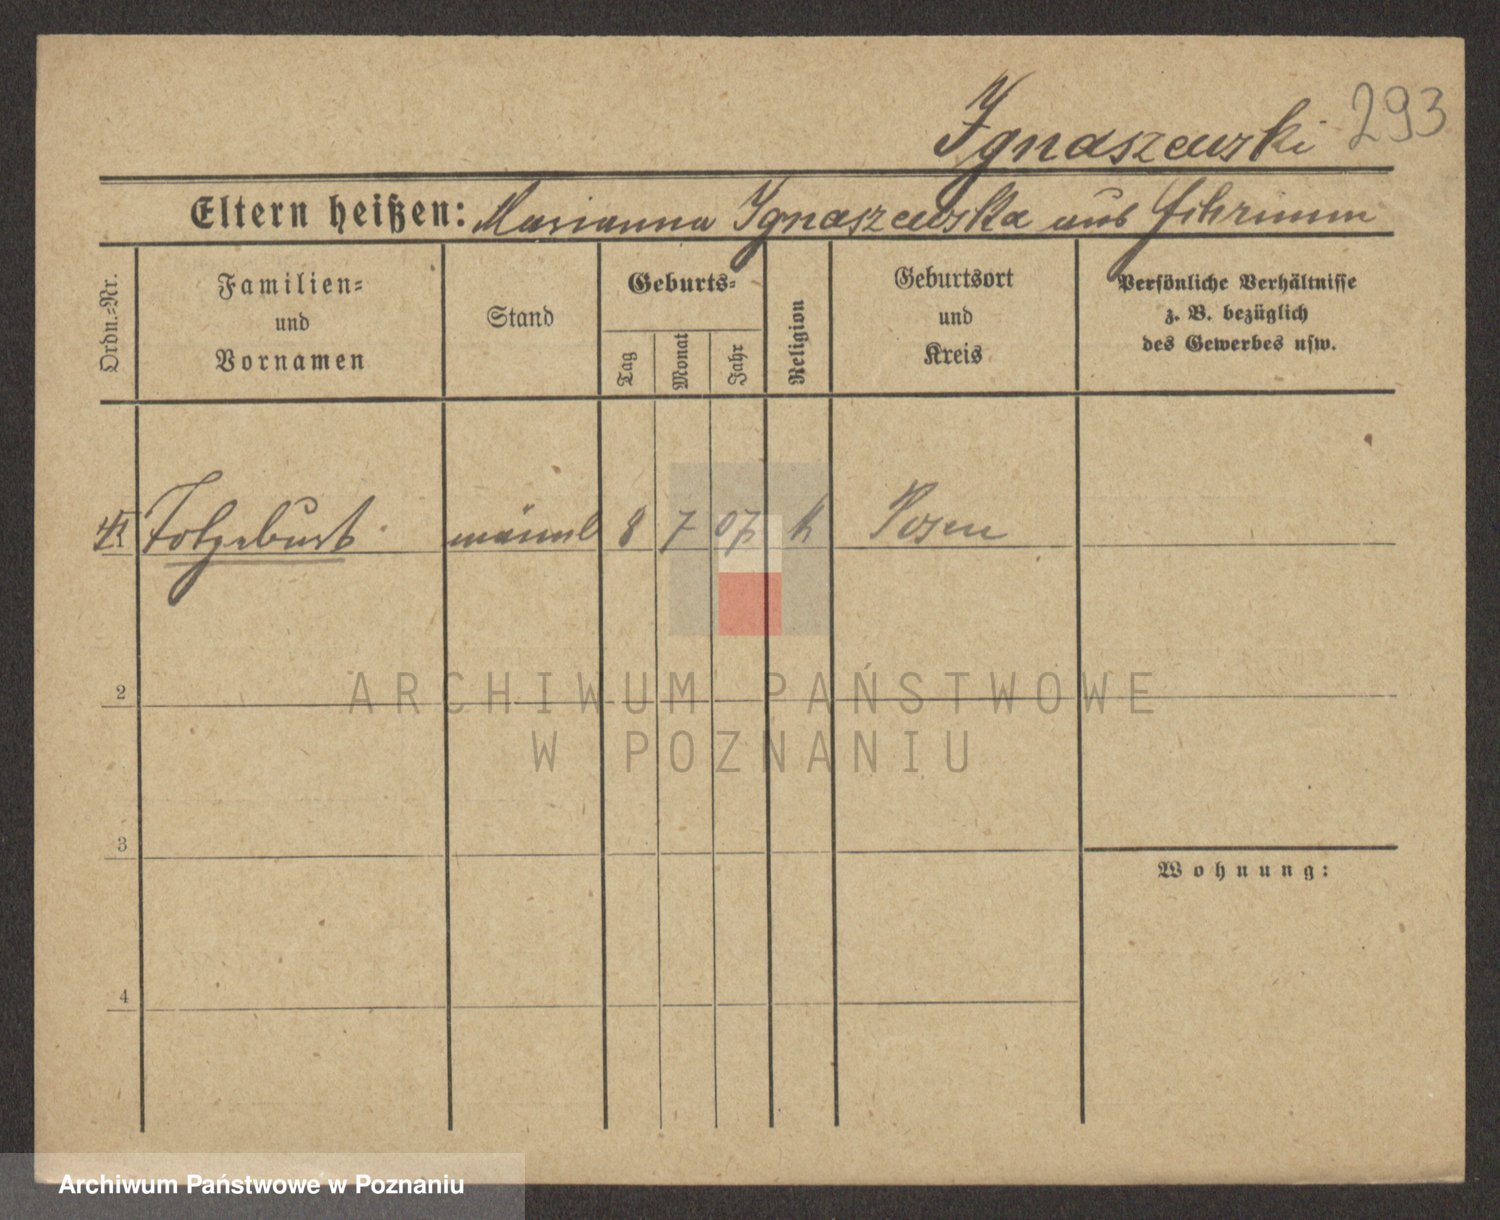 Ignaszewski 293
Eltern heißen: Marianna Ignaszewska aus
Ordn.-Nr.
Familien-
und
Vornamen
Stand
Geburts-
Tag
Monat
Jahr
Religion
Geburtsort
und
Kreis
Persönliche Verhältnisse
z. B. bezüglich
des Gewerbes usw.
Totgeburt männl 8 7 07 k Posen
2
ARCHIWUM PAŃSTWOWE
W POZNANIU
3
Wohnung:
4
Archiwum Państwowe w Poznaniu